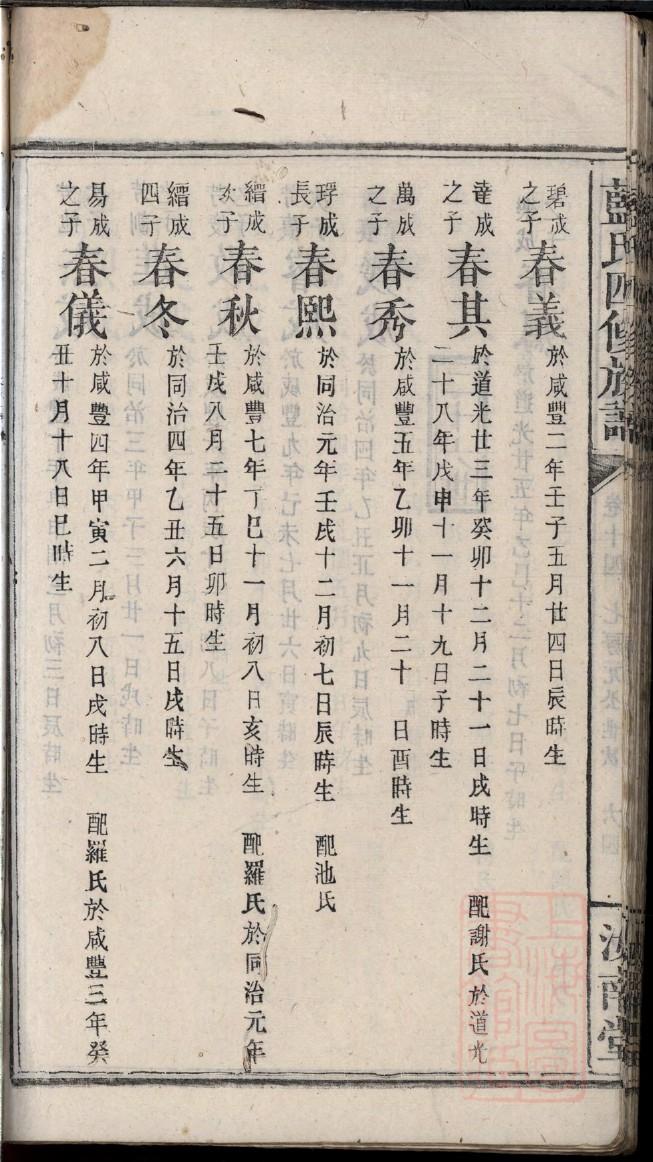 藍氏四修族譜
汝南堂
碧成之子 春義 於咸豐二年壬子五月廿四日辰時生
達成之子 春其 於道光廿三年癸卯十二月二十一日戌時生 配謝氏於道光
二十八年戊申十一月十九日子時生
萬成之子 春秀 於咸豐五年乙卯十一月二十 日酉時生
琈成長子 春熙 於同治元年壬戌十二月初七日辰時生 配池氏
縉成次子 春秋 於咸豐七年丁巳十一月初八日亥時生 配羅氏於同治元年
壬戌八月二十五日卯時生
縉成四子 春冬 於同治四年乙丑六月十五日戌時生
易成之子 春儀 於咸豐四年甲寅二月初八日戌時生 配羅氏於咸豐三年癸
丑十月十八日巳時生